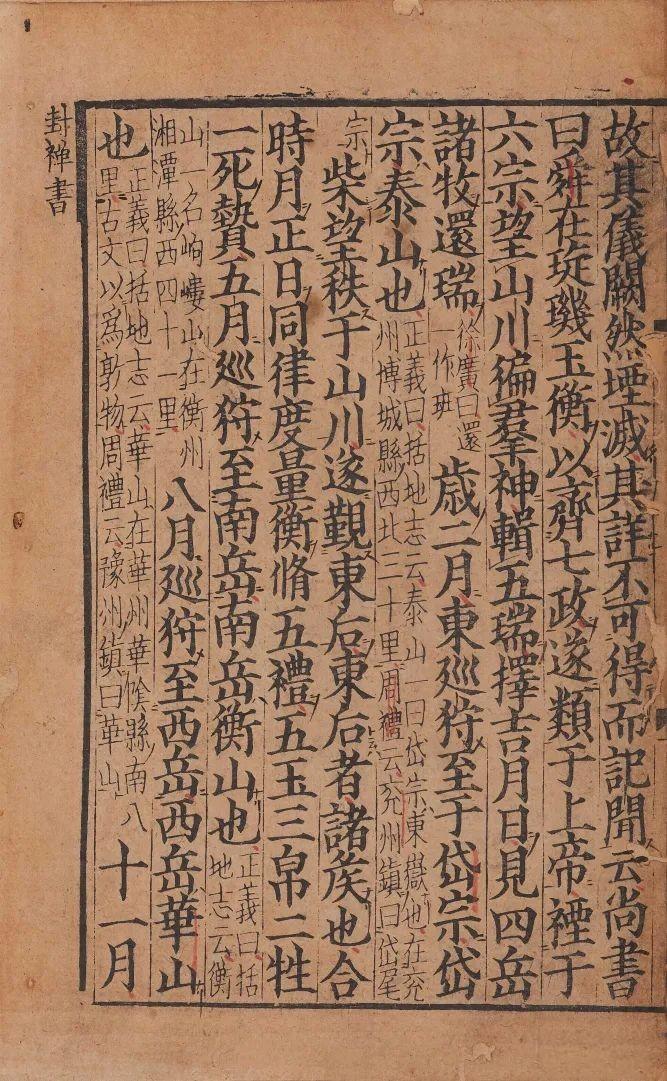 故其儀闕然堙滅其詳不可得而記聞云尚書
曰舜在琁璣玉衡以齊七政遂類于上帝禋于
六宗望山川徧羣神輯五瑞擇吉月日見四岳
諸牧還瑞徐廣曰還一作班歲二月東廵狩至于岱宗岱
宗泰山也正義曰括地志云泰山一曰岱宗東嶽也在兖州博城縣西北三十里周禮云兖州鎮曰岱尾
宗柴望秩于山川遂覲東后東后者諸侯也合
時月正日同律度量衡脩五禮五玉三帛二牲
一死贄五月廵狩至南岳南岳衡山也正義曰括地志云衡
山一名岣嶁山在衡州湘潭縣西四十一里八月廵狩至西岳西岳華山
也正義曰括地志云華山在華州華隂縣南八里古文以爲敦物周禮云豫州鎮曰華山十一月
封禪書